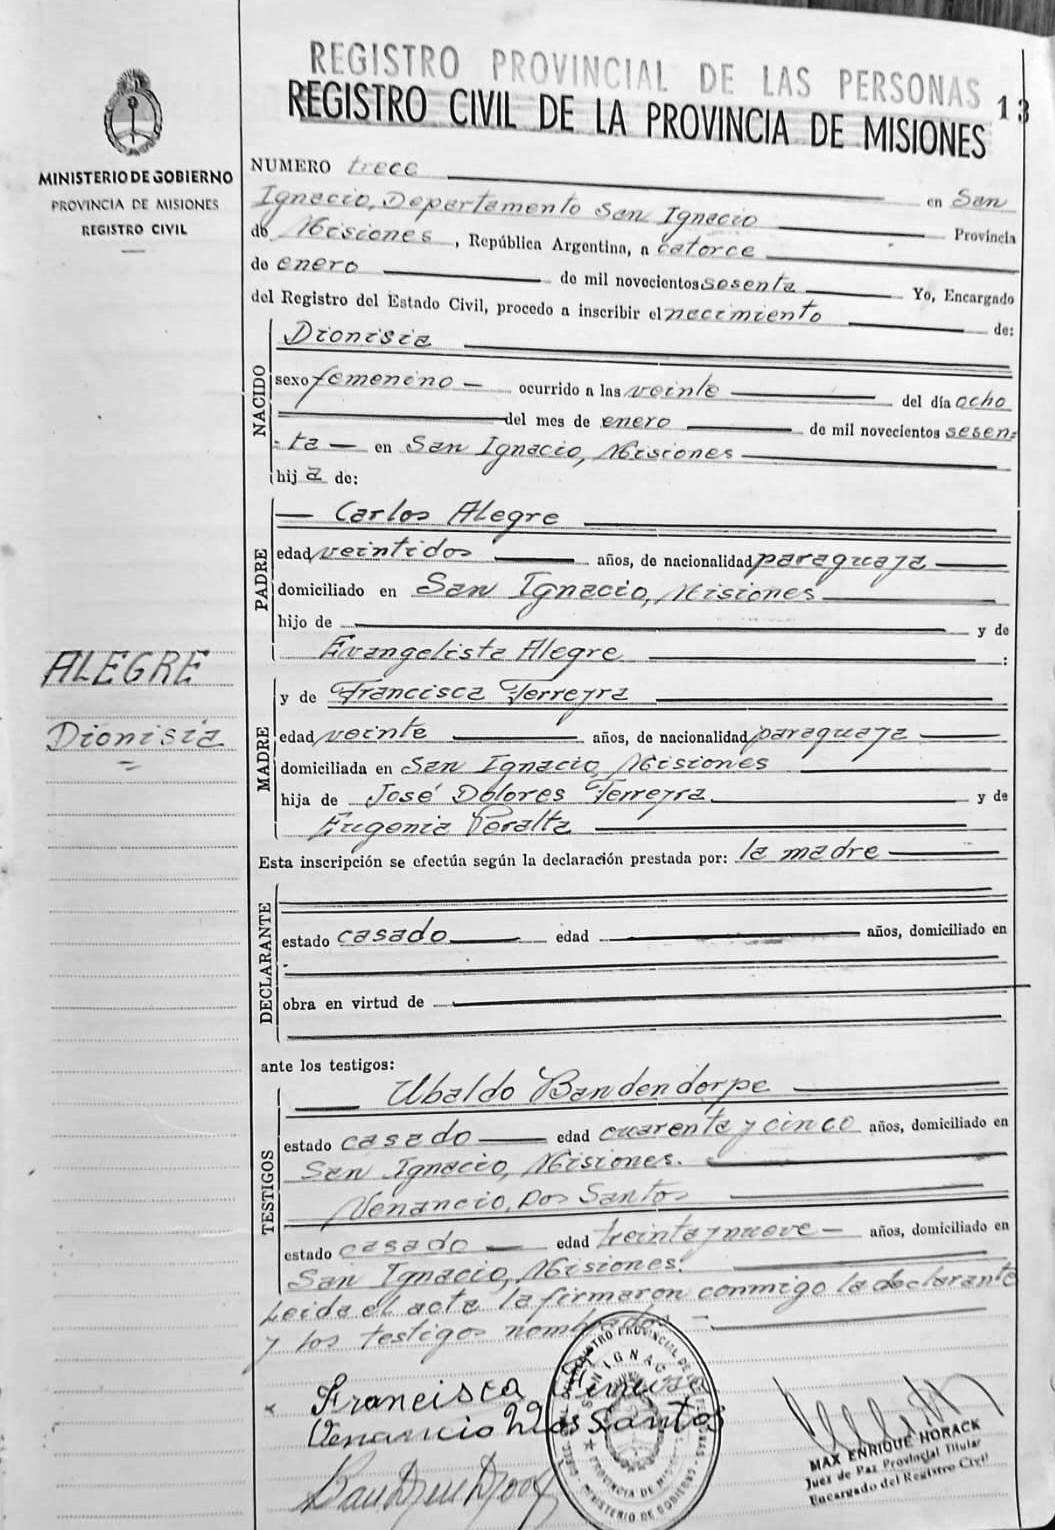 REGISTRO PROVINCIAL DE LAS PERSONAS
REGISTRO CIVIL DE LA PROVINCIA DE MISIONES
13
MINISTERIO DE GOBIERNO
PROVINCIA DE MISIONES
REGISTRO CIVIL
NUMERO trece en San
Ignacio, Departamento San Ignacio Provincia
de Misiones, República Argentina, a catorce
de enero de mil novecientos sesenta Yo, Encargado
del Registro del Estado Civil, procedo a inscribir el nacimiento de:
NACIDO
Dionisia
sexo femenino — ocurrido a las veinte del día ocho
del mes de enero de mil novecientos sesen=
=ta — en San Ignacio, Misiones
hija de:
PADRE
— Carlos Alegre
edad veintidos años, de nacionalidad paraguaya
domiciliado en San Ignacio, Misiones
hijo de y de
Evangelista Alegre :
ALEGRE
Dionisia
MADRE
y de Francisca Ferreyra
edad veinte años, de nacionalidad paraguaya
domiciliada en San Ignacio, Misiones
hija de José Dolores Ferreyra y de
Eugenia Peralta
Esta inscripción se efectúa según la declaración prestada por: la madre
DECLARANTE
estado casado edad años, domiciliado en
obra en virtud de
ante los testigos:
TESTIGOS
Ubaldo Bandendorpe
estado casado edad cuarenta y cinco años, domiciliado en
San Ignacio, Misiones.
Venancio, Dos Santos
estado casado edad treinta y nueve — años, domiciliado en
San Ignacio, Misiones.
Leida el acta la firmaron conmigo la declarante
y los testigos nombrados.-
Francisca
Venancio Dos Santos
SAN IGNACIO
PROVINCIA DE MISIONES
MINISTERIO DE GOBIERNO
MAX ENRIQUE HORACK
Juez de Paz Provincial Titular
Encargado del Registro Civil